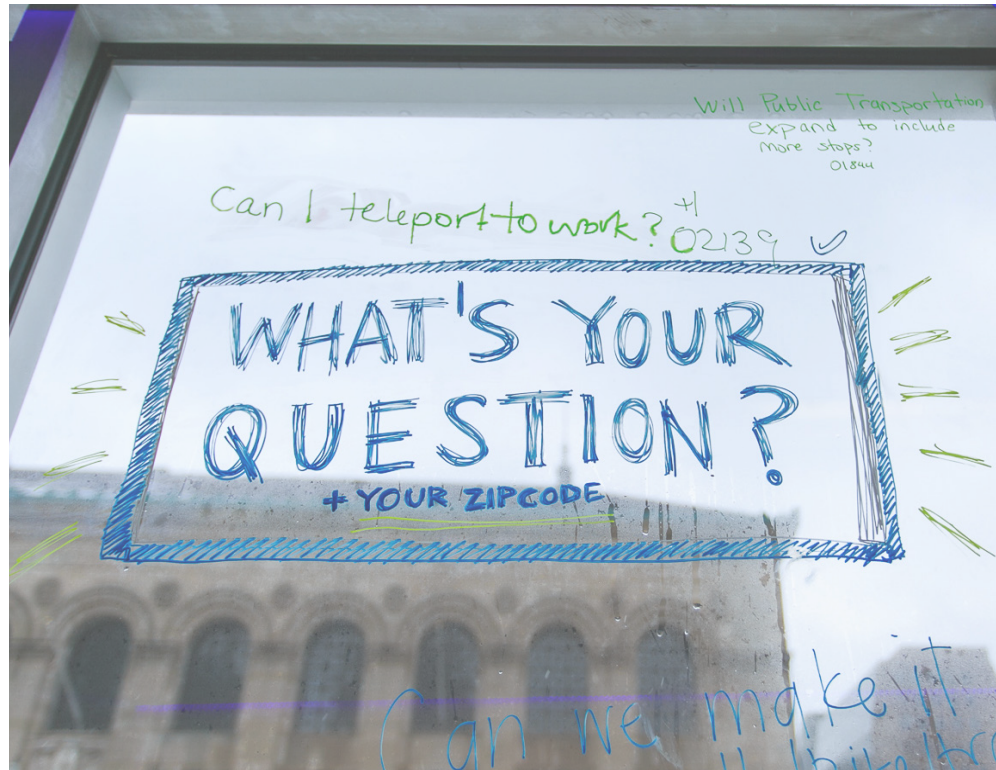 Will Public Transportation
expand to include
more stops?
01844
Can I teleport to work?
+1
02139
WHAT'S YOUR
QUESTION?
+ YOUR ZIPCODE
Can we make it